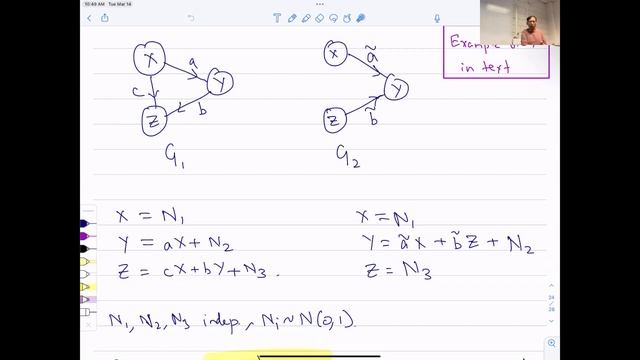 10:49 AM Tue Mar 14
Example
in text
X
a
Y
c
b
Z
G₁
X
ã
Y
b̃
Z
G₂
X = N₁
Y = aX + N₂
Z = cX + bY + N₃.
X = N₁
Y = ãX + b̃Z + N₂
Z = N₃
N₁, N₂, N₃ indep, Nᵢ ~ N(0,1).
24
26